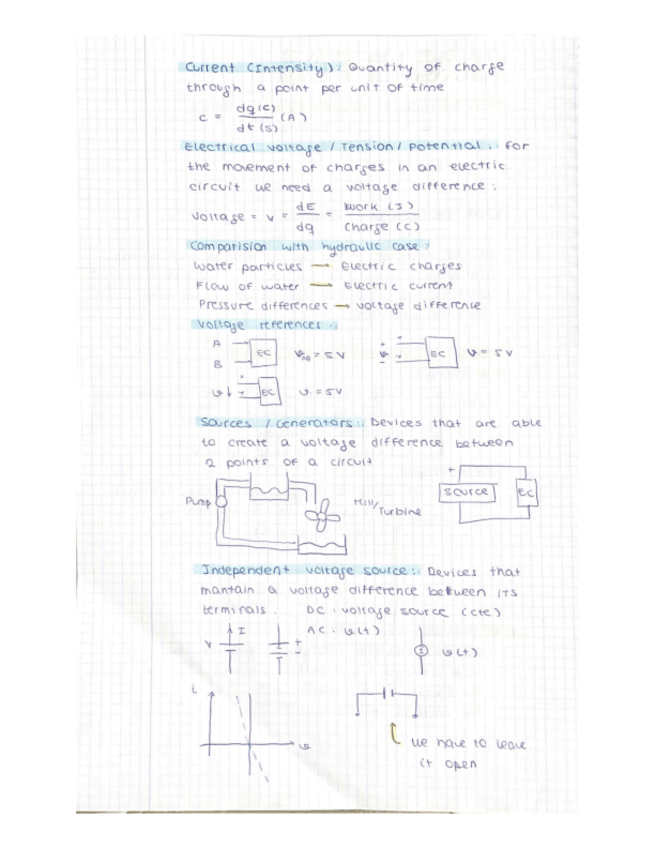 Current (Intensity): Quantity of charge
through a point per unit of time
c = dq(c) / dt(s) (A)
Electrical voltage / Tension / Potential.: For
the movement of charges in an electric
circuit we need a voltage difference:
Voltage = v = dE / dq = Work (J) / Charge (C)
Comparision with hydraulic case:
Water particles → Electric charges
Flow of water → Electric current
Pressure differences → voltage difference
Voltage references.:
A
B
EC
VAB = 5V
+ v - + - EC v = 5V
v↓ + - EC v = 5V
Sources / Generators: Devices that are able
to create a voltage difference between
2 points of a circuit
Pump
Mill/
Turbine
+ source EC
Independent voltage source: Devices that
mantain a voltage difference between its
terminals. DC: voltage source (cte)
AC: v(t)
V I + -
v(t)
i
v
we have to leave
it open